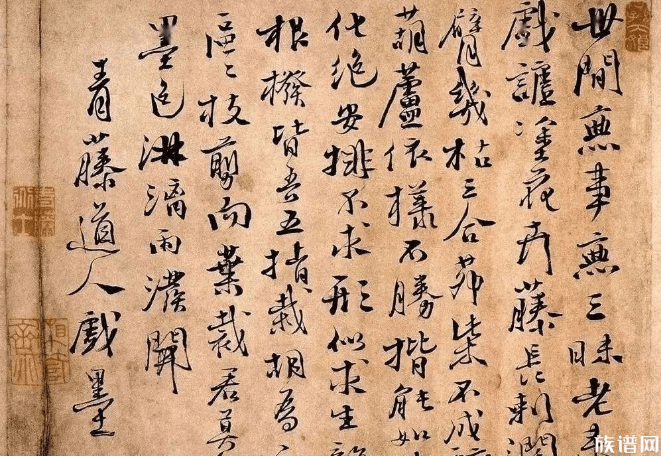 世間無事無三昧老来
戲謔塗花卉藤長刺濶
臂幾枯三合茆柴不成
葫蘆依樣不勝揩能如
化絶安排不求形似求生
根撥皆吾五指栽胡爲
區〻枝剪而葉裁君莫
墨色淋漓雨潑開
青藤道人戲墨
族谱网